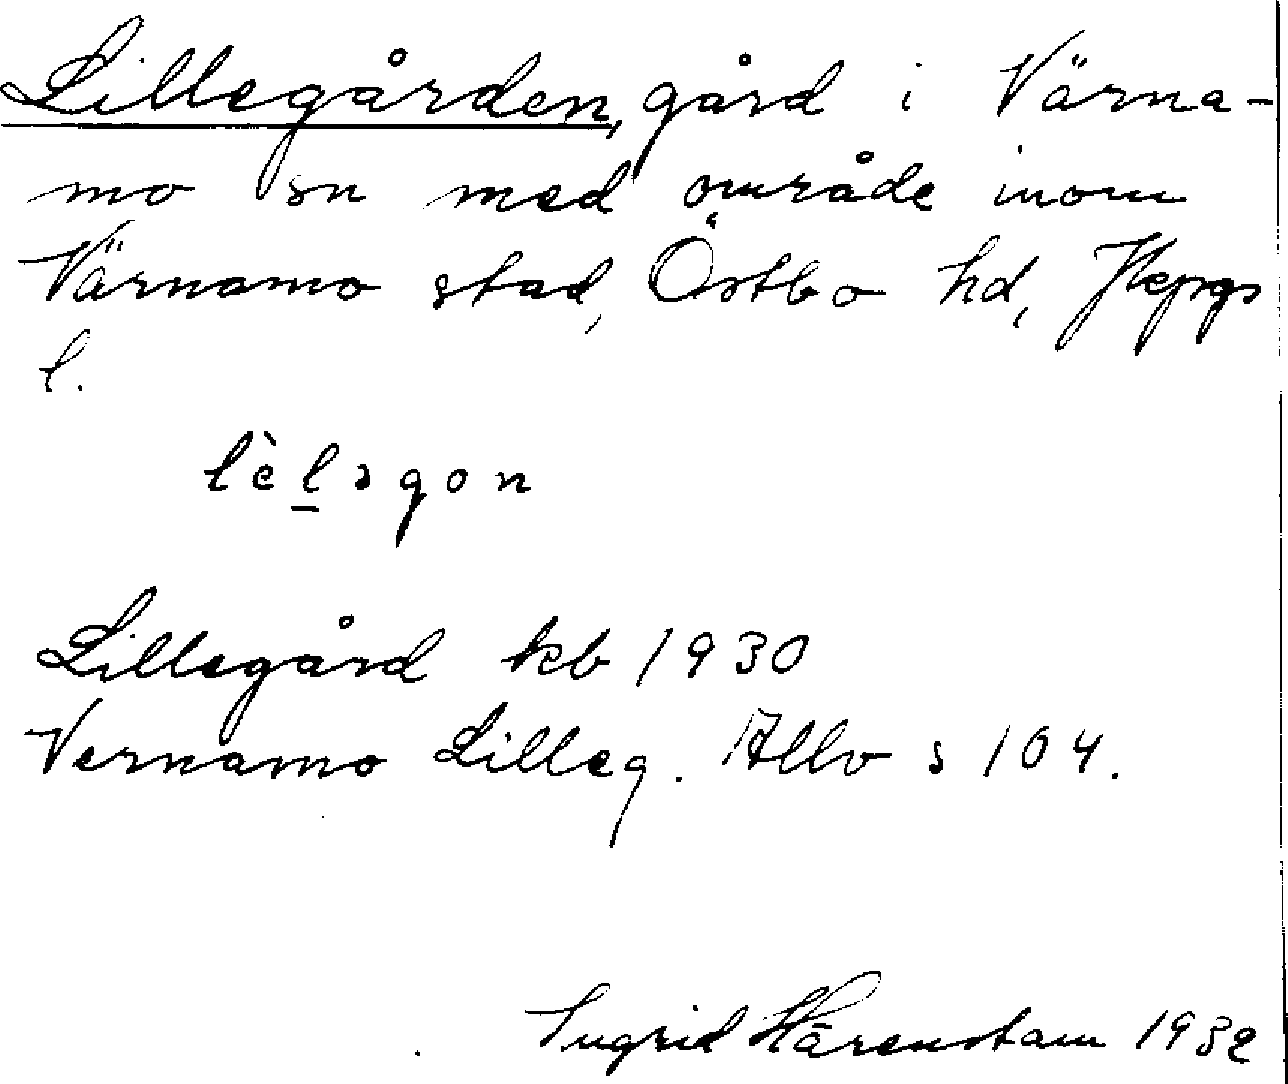 Lillegården, gård i Värna-
mo sn med område inom
Värnamo stad, Östbo hd, Jkpgs
l.
lèl̲əgon
Lillegård kb 1930
Vernamo Lilleg. Allv s 104.
Ingrid Härenstam 1932